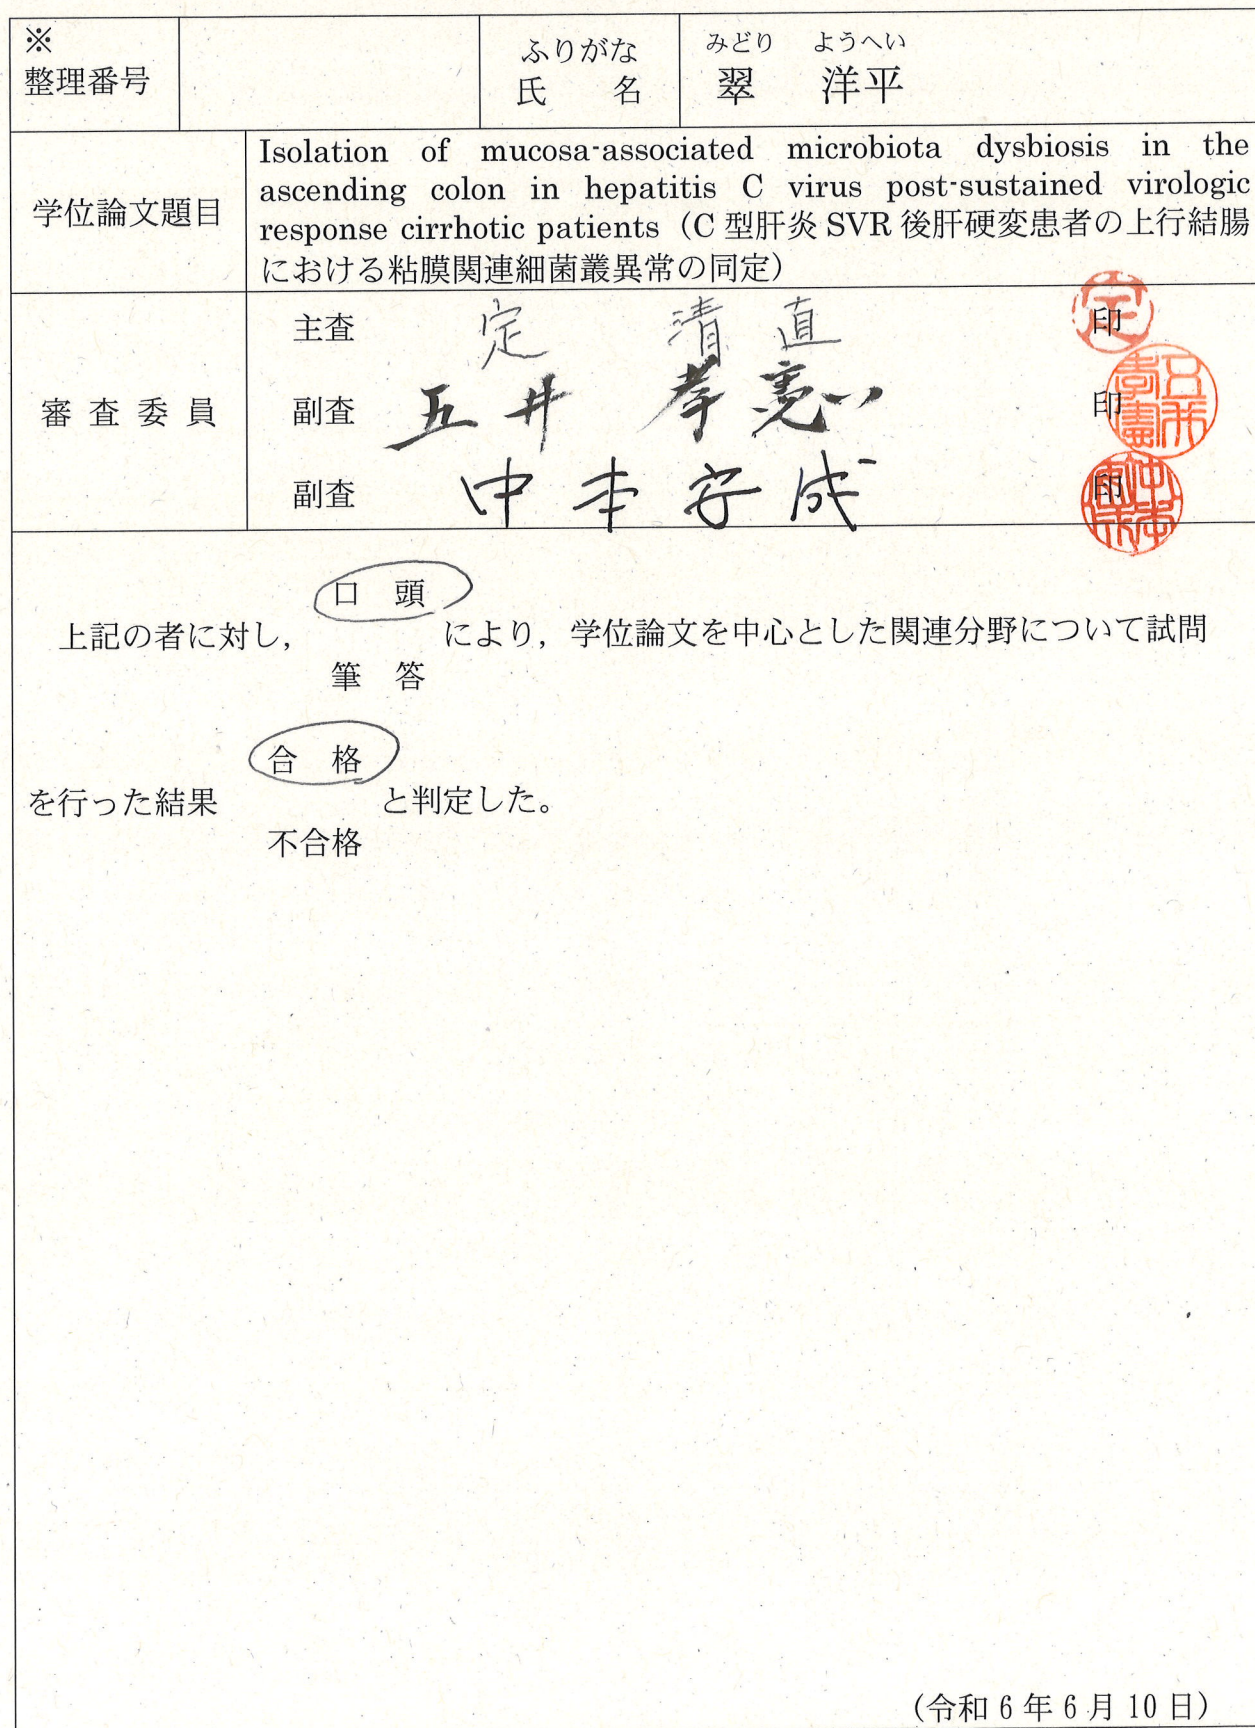 ※
整理番号
ふりがな
氏 名
みどり ようへい
翠 洋平
学位論文題目
Isolation of mucosa-associated microbiota dysbiosis in the
ascending colon in hepatitis C virus post-sustained virologic
response cirrhotic patients（C 型肝炎 SVR 後肝硬変患者の上行結腸
における粘膜関連細菌叢異常の同定）
審 査 委 員
主査 定 清 直 印
副査 五 井 孝 憲 印
副査 中 本 安 成 印
口 頭
上記の者に対し， により，学位論文を中心とした関連分野について試問
筆 答
合 格
を行った結果 と判定した。
不合格
（令和 6 年 6 月 10 日）